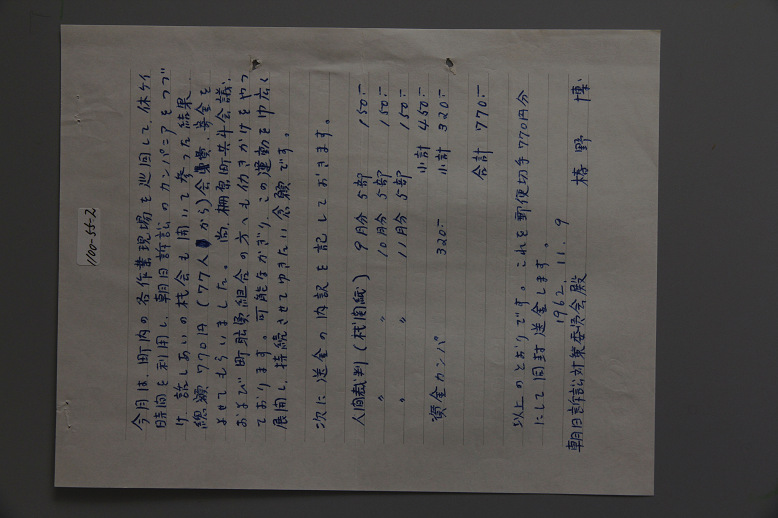 1100-55-2
今月は、町内の各作業現場を巡回して、休ケイ
時間を利用し、朝日訴訟のカンパニアをつづ
け、話しあいの機会も開いて参った結果、
総額 770円 (77人から) 会費、資金を
よせてもらいました。尚、棚倉町共斗会議、
および町職労組合の方へも仂きかけをやっ
ております。可能なかぎり、この運動を巾広く
展開し、持続させてゆきたい念願です。
次に送金の内訳を記しておきます。
人間裁判 (機関紙) 9月分 5部 150.-
〃 〃 10月分 5部 150.-
〃 〃 11月分 5部 150.-
小計 450.-
資金カンパ 320.- 小計 320.-
合計 770.-
以上のとおりです。これを郵便切手770円分
にして同封送金します。
1962. 11. 9
朝日訴訟対策委員会殿 野 博